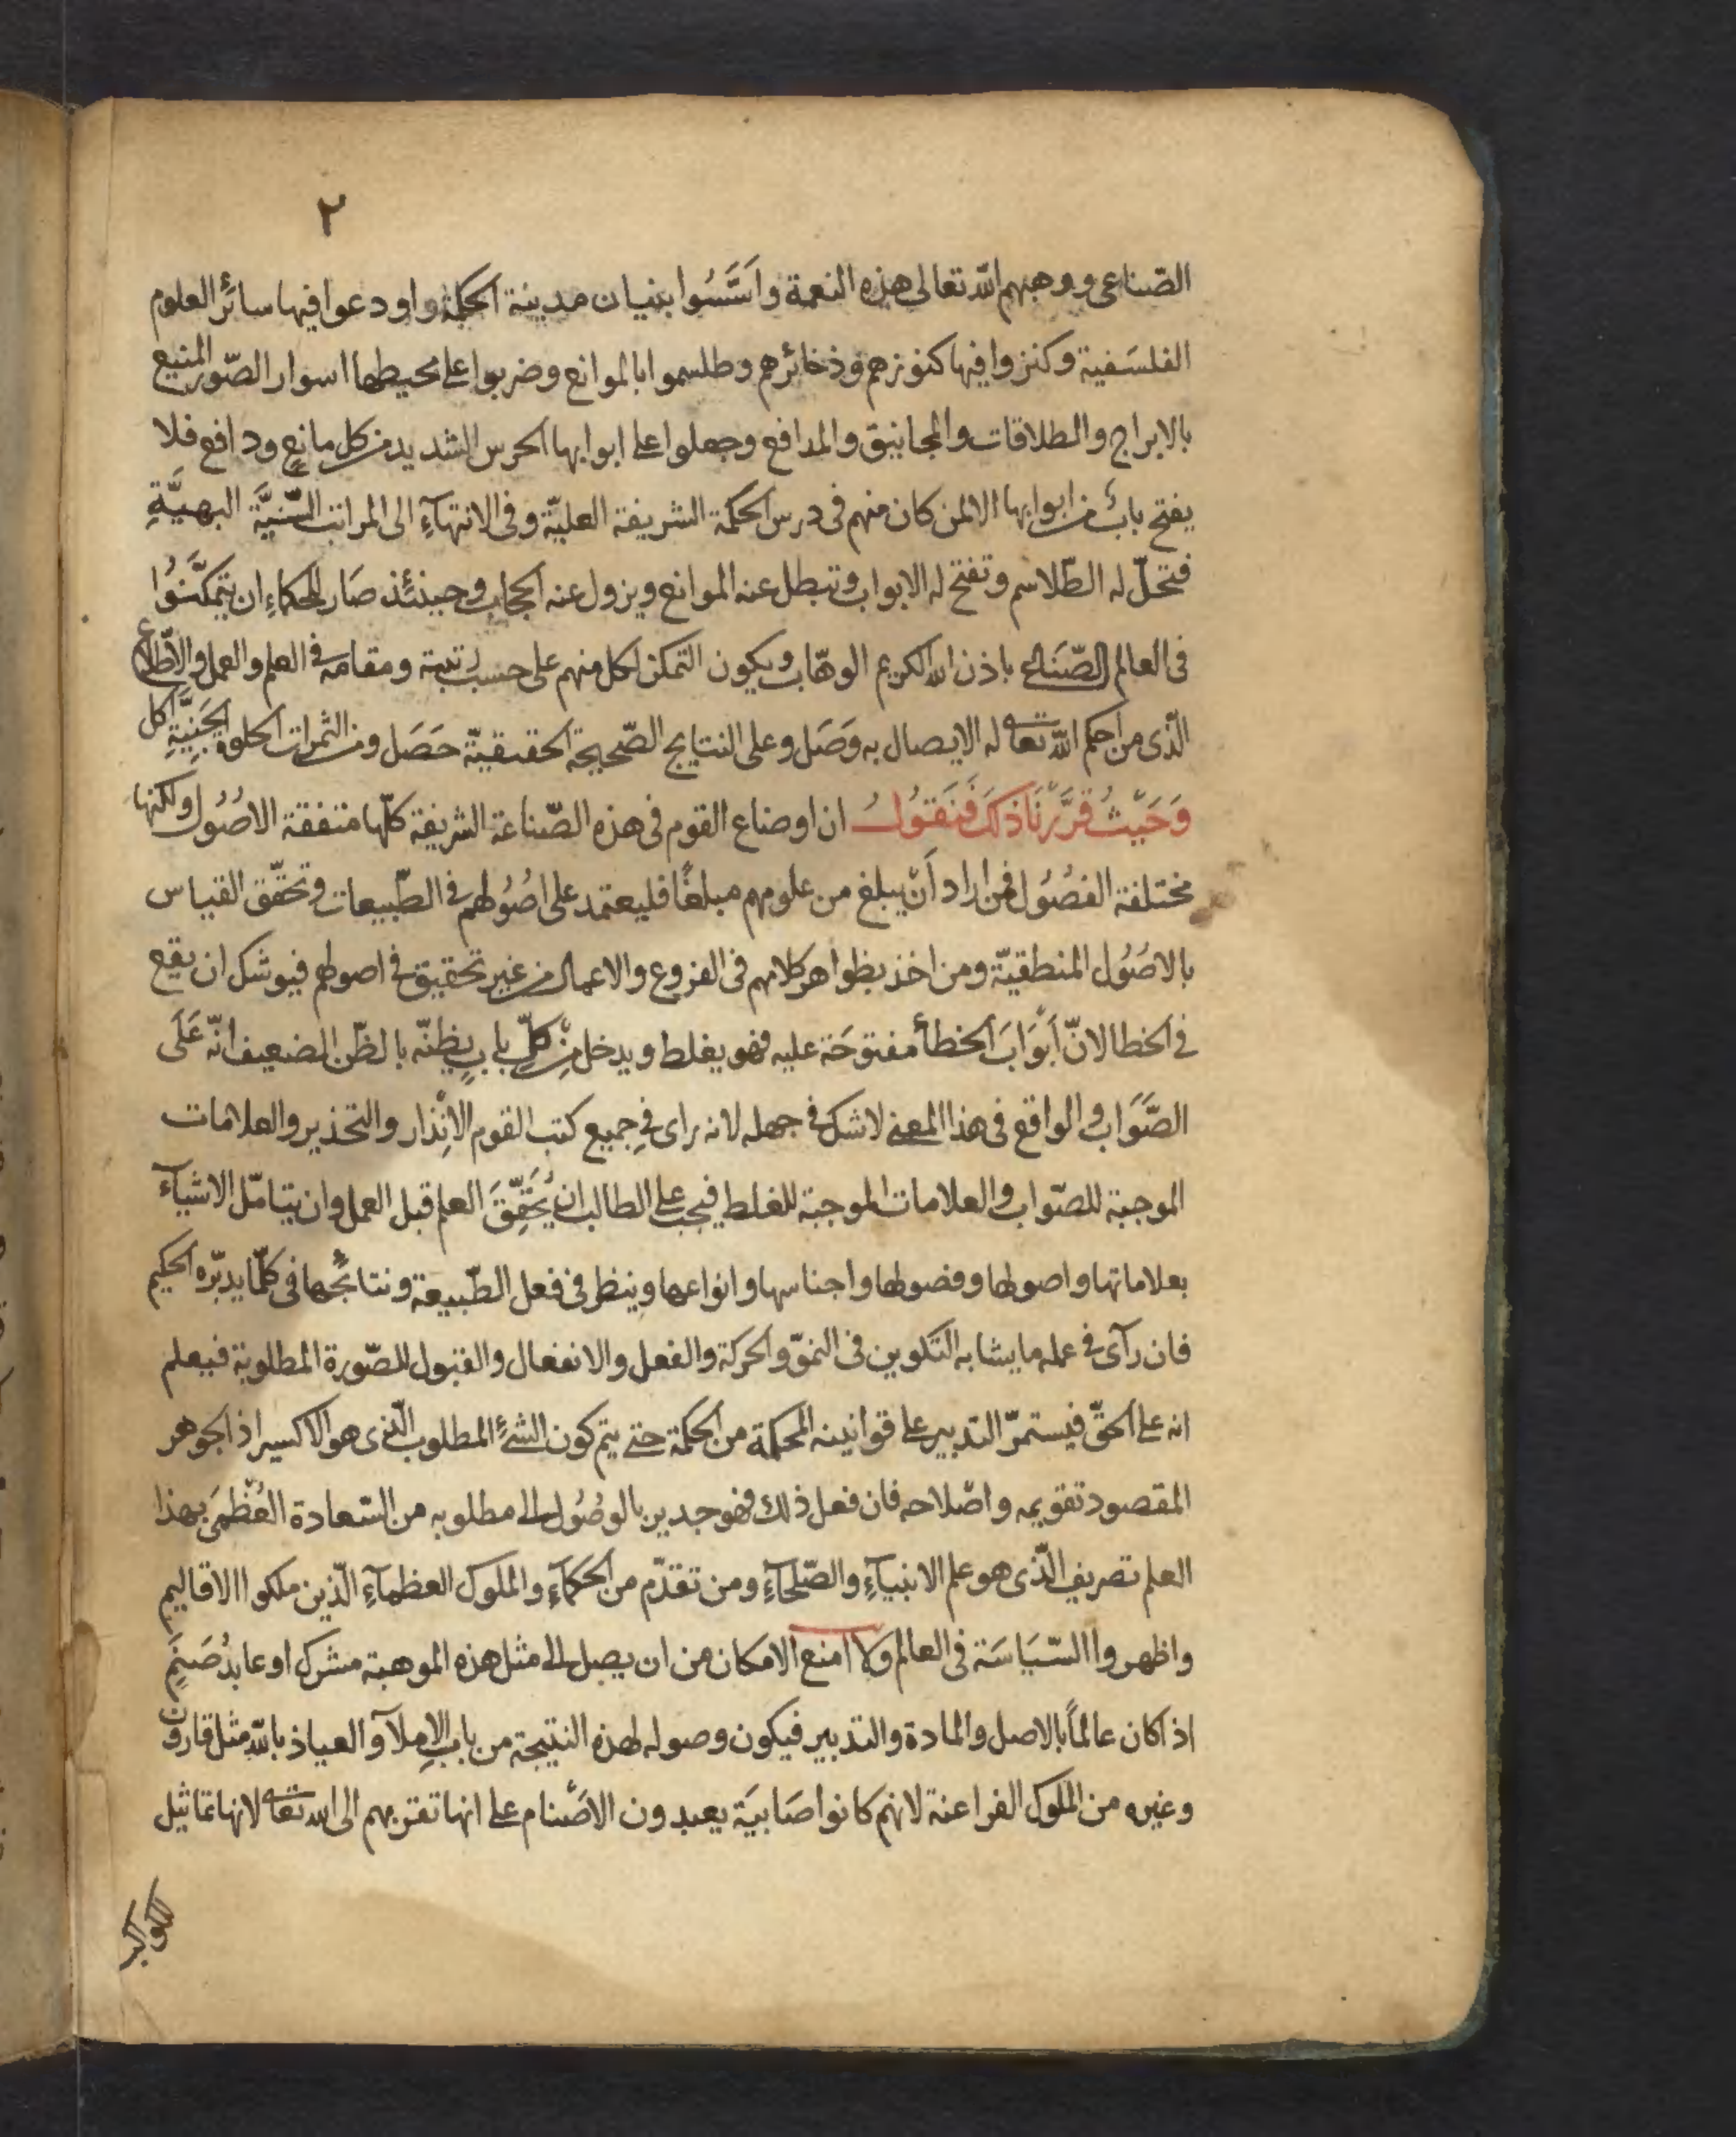 ٢
الصّناعى ووهبهم الله تعالى هذه النعمة واَسَّسُوا بنيان مدينة الحكمة واودعوا فيها سائر العلوم
الفلسَفية وكنزوا فيها كنوزهم وذخائرهم وطلسموا بالموانع وضربوا على محيطها اسوار الصّور المنيع
بالابراج والطلاقات والمجانيق والمدافع وجعلوا على ابوابها الحرس الشديد من كل مانعٍ ودافع فلا
يفتح بابٌ من ابوابها الا لمن كان منهم فى درس الحكمة الشريفة العليّة وفى الانتهآءِ الى المراتب السَّنيَّة البهيَّةِ
فتحلّ له الطّلاسم وتفتح له الابواب وتبطل عنه الموانع ويزول عنه الحجاب وحينئذ صَار للحكماءِ ان يتمكَّنوُا
فى العالم الصّنَاعى باذن الله الكريم الوهّاب ويكون التمكن لكل منهم على حسب رتبته ومقامه فى العلم والعمل والاطّلاع
الّذى من احكم الله تعالى له الايصال به وَصَل وعلى النتايج الصّحيحة الحقيقيّة حَصَل ومن الثمرات الحلوة الجَنِيَّةِ اكل
وَحَيْثُ قَرَّرْنَا ذَلكَ فَنَقوُلُ ان اوضاع القوم فى هذه الصّناعة الشريفة كلّها متفقة الاصُوُل ولكنها
مختلفة الفصُوُل فمن اراد اَنْ يبلغ من علومهم مبلغًا فليعتمد على اصُوُلهم فى الطّبيعات وتحقّق القياس
بالاصُوُل المنطقيّة ومن اخذ بظواهر كلامهم فى الفروع والاعمال من غير تحقيق فى اصولهم فيوشك ان يقع
فى الخطا لانّ اَبْوَابَ الخطأ مفتوحَة عليه فهو يغلط ويدخل مِنْ كلِّ بابٍ يظنّه بالظّن الضعيف انّه عَلَى
الصَّوَاب والواقع فى هذا المعنى لا شك فى جهله لانه راى فى جميع كتب القوم الاِنْذار والتحذير والعلامات
الموجبة للصّواب والعلامات الموجبة للغلط فيجب على الطالب ان يُحَقِّقَ العلم قبل العمل وان يتامّل الاشيآء
بعلاماتها واصولها وفصولها واجناسها وانواعها وينظر فى فعل الطّبيعة ونتائجها فى كلّما يدبّره الحكيم
فان رآى فى عمله ما يشابه التكوين فى النموّ والحركة والفعل والانفعال والقبول للصّورة المطلوبة فيعلم
انه على الحقّ فيستمرّ التدبير على قوانينه المحكمة من الحكمة حتى يتم كون الشئِ المطلوب الّذى هو الاكسير اذ الجوهر
المقصود تقويمه واصْلاحه فان فعل ذلك فهو جدير بالوصُوُل الى مطلوبه من السّعادة العُظْمَى بهذا
العلم تصريف الّذى هو علم الانبيآءِ والصّلحآءِ ومن تقدّم من الحكمآءِ والملوك العظمآءِ الّذين ملكوا الاقاليم
واظهروا السّيَاسَة فى العالم ولا امنع الامكان من ان يصل الى مثل هذه الموهبة مشرك او عابدُ صَنَمٍ
اذا كان عالماً بالاصل والمادة والتدبير فيكون وصوله لهذه النتيجة من باب الاِملآء والعياذ بالله مثل قارون
وغيره من الملوك الفراعنة لانهم كانوا صَابيَة يعبدون الاصْنام على انها تقربهم الى الله تعالى لانها تماثيل
للكواكب